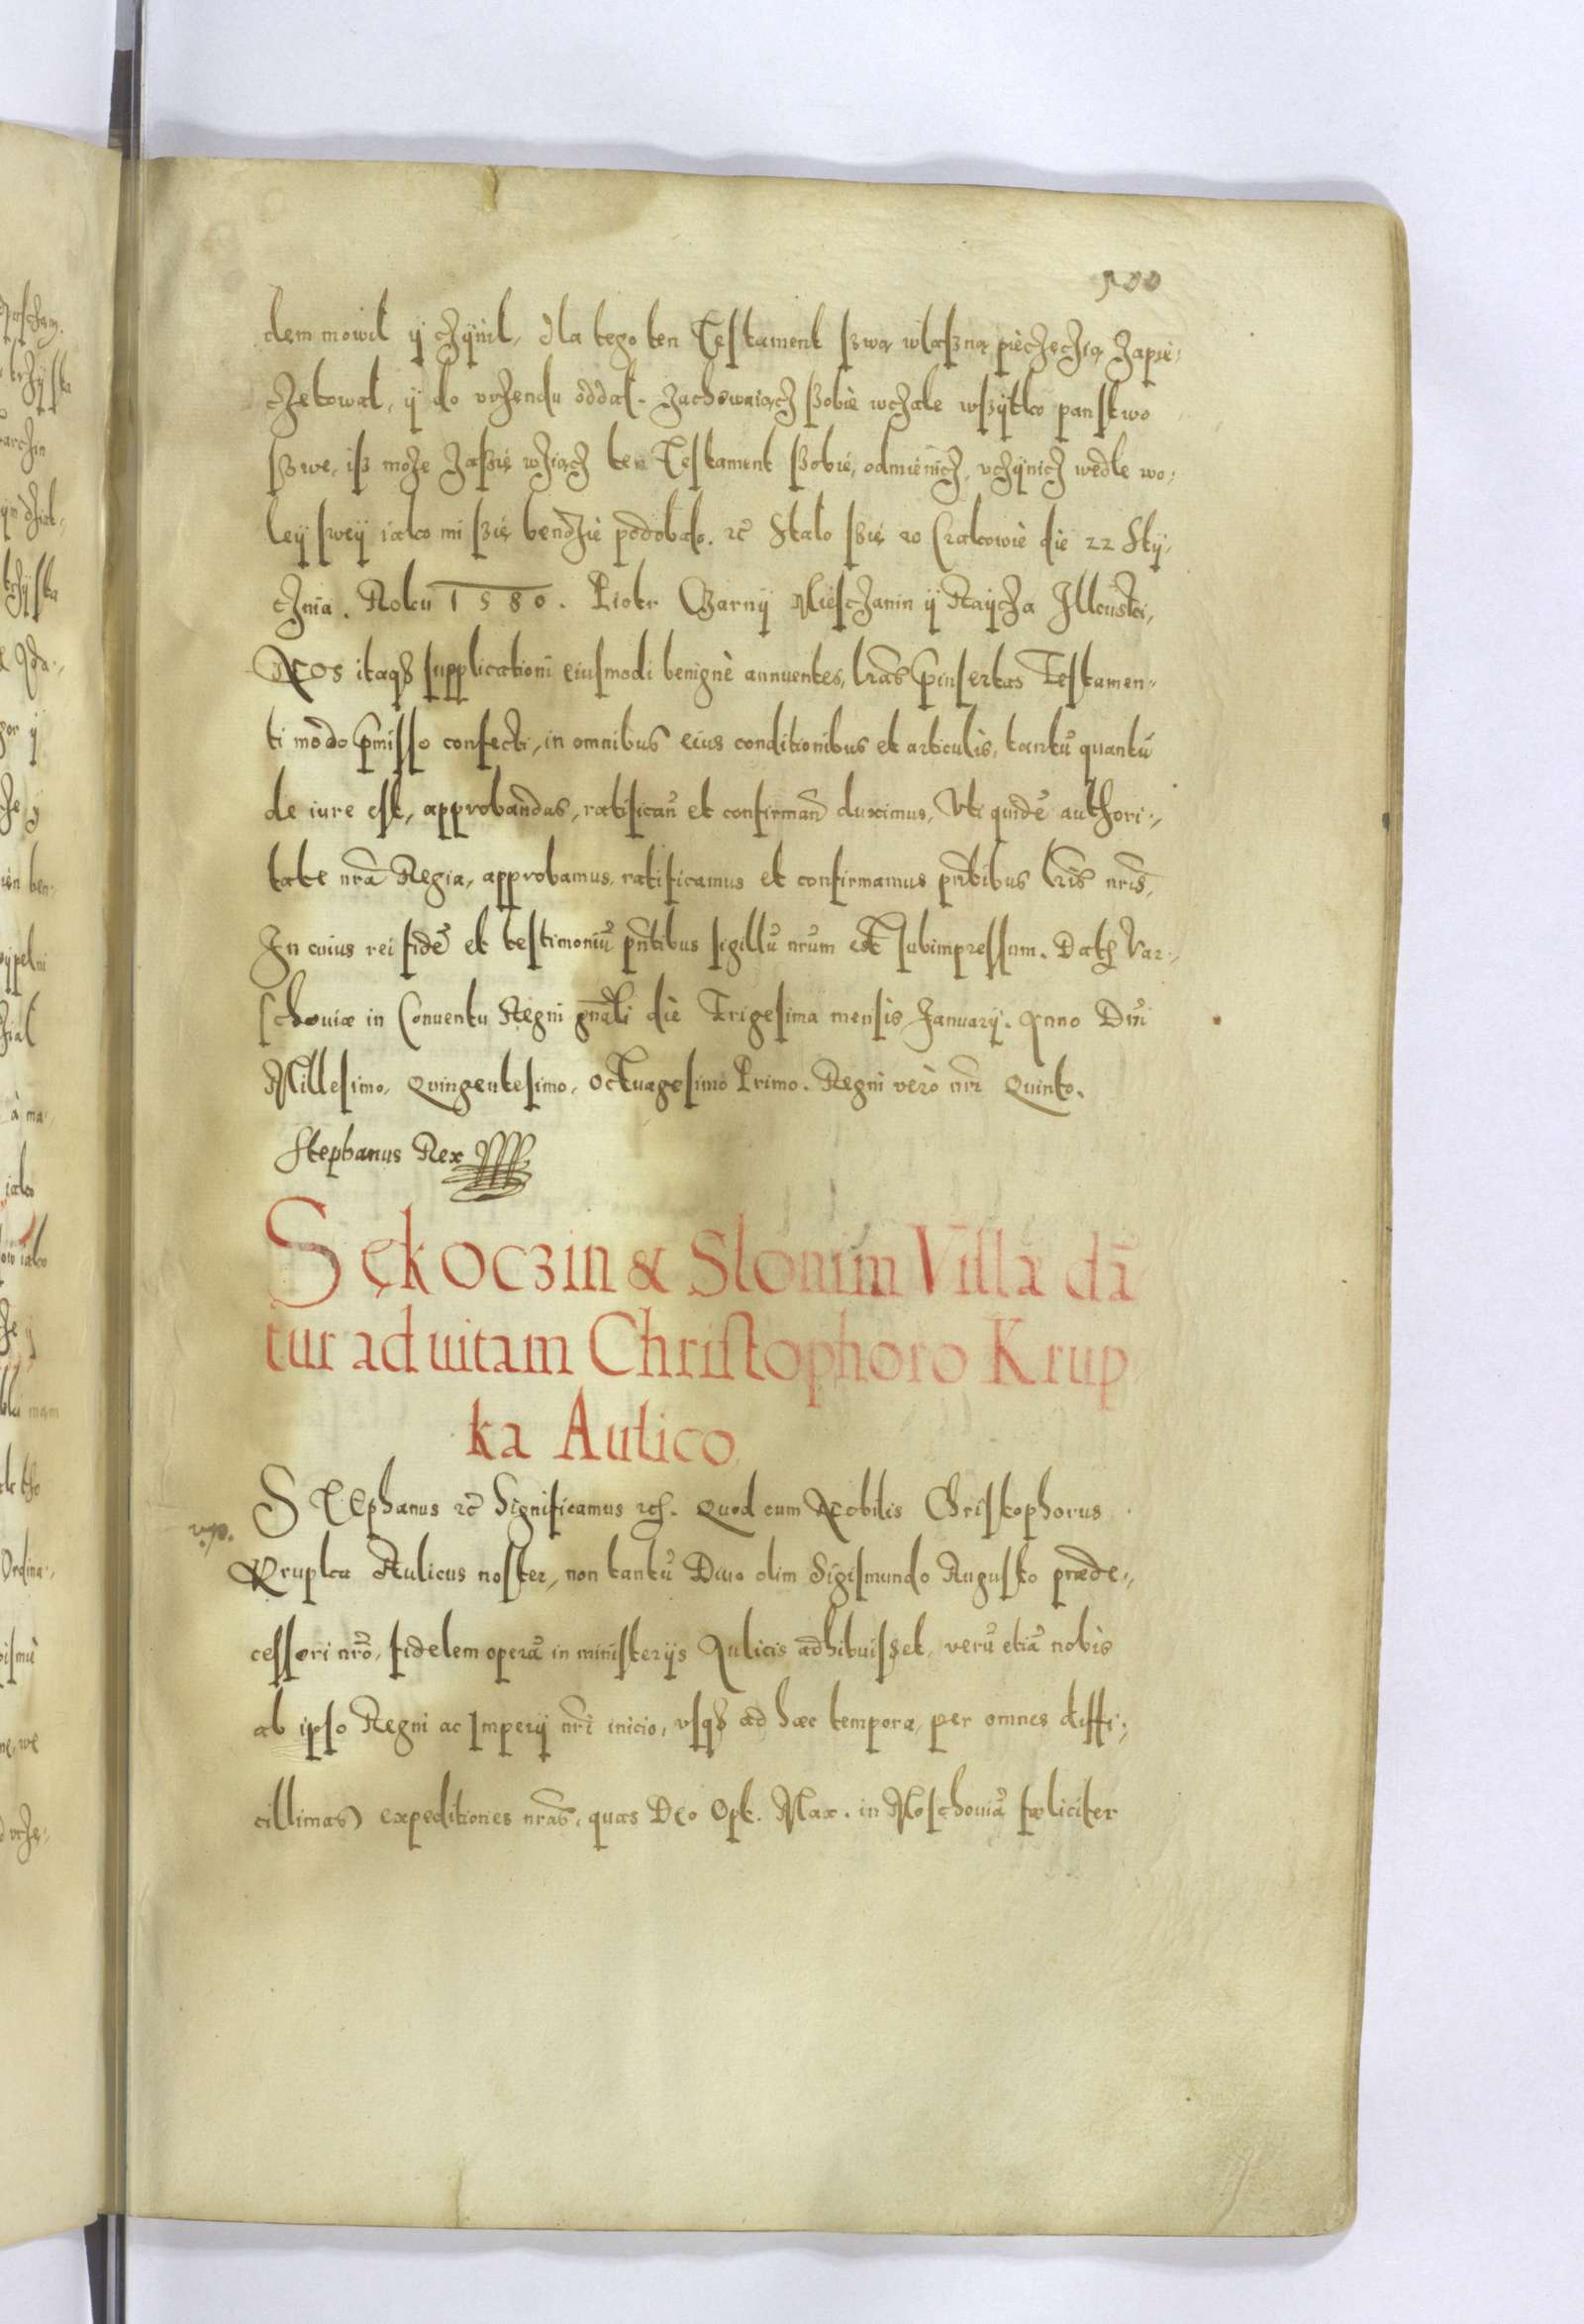 500
dem mowil ÿ cżÿnil, dla tego ten Testament szwą własną pieczęczią zapie-
czetowal, ÿ do vrzendu oddal. zachowaiącz szobie wczale wszÿtko panstwo
szwe, isz moze zaszię wziącz ten Testament szobie, odmienicz, vczÿnicz wedle wo-
leÿ sweÿ iako mi szię bendzie podobalo. etc̃ Stalo szię w Crakowie die 22 Stÿ-
cznia. Roku 1580. Piotr Czarnÿ Miesczanin ÿ Raÿcza Ilkuski,
Nos itaqȝ supplicationi eiusmodi benignè annuentes, lr̃as p̃insertas Testamen-
ti modo p̃misso confecti, in omnibus eius conditionibus et articulis, tantũ quantũ
de iure est, approbandas, ratifican̄ et confirman̄ duximus, Vti quidẽ authori-
tate nr̃a Regia, approbamus, ratificamus et confirmamus pñtibus lr̃is nr̃is,
In cuius rei fidẽ et testimoniũ pñtibus sigillũ nr̃um est subimpressum. Datȝ Var-
schouiæ in Conuentu Regni gñali die Trigesima mensis Januarÿ. Anno Dñi
Millesimo, Quingentesimo, Octuagesimo Primo. Regni verò nr̃i Quinto.
Stephanus Rex
Sękoczin & Slonim Villæ dã
tur ad uitam Christophoro Krup
ka Aulico
STEphanus etc̃ Significamus etc̃. Quod cum Nobilis Christophorus
Krupka Aulicus noster, non tantũ Diuo olim Sigismundo Augusto præde-
cessori nr̃o, fidelem operã in ministerÿs Aulicis adhibuisset, verũ etiã nobis
ab ipso Regni ac Imperÿ nr̃i inicio, vsqȝ ad hæc tempora, per omnes diffi-
cillimas expeditiones nr̃as, quas Deo Opt. Max. in Moschouiã fæliciter